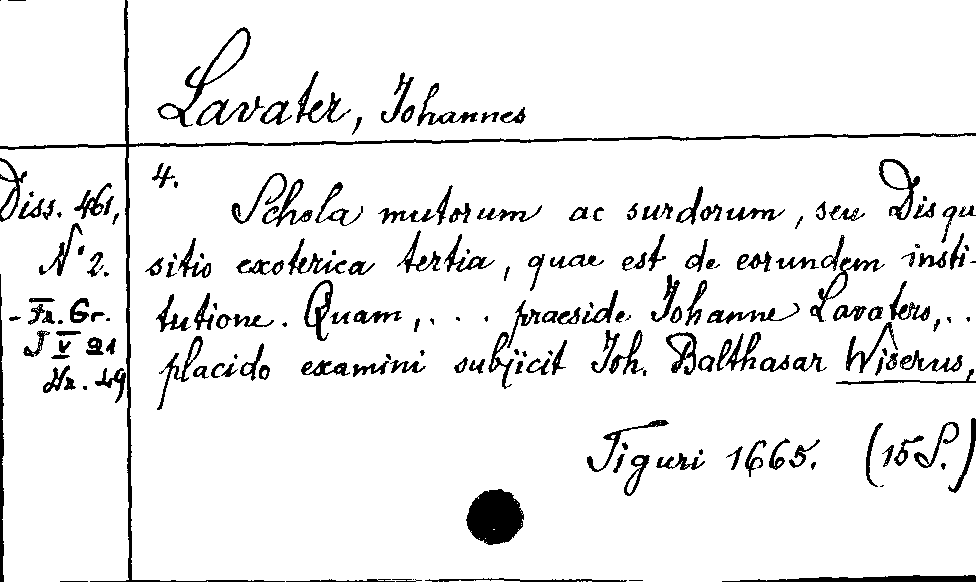 Lavater, Johannes
Diss. 461,
N° 2.
- Fx. Gr.
J V a1
Nr. 49
4.
Schola mutorum ac surdorum, seu Disqu
sitio exoterica tertia, quae est de eorundem insti-
tutione. Quam, . . . praeside Johanne Lavatero, . .
placido examini subjicit Joh. Balthasar Wiserus,
Tiguri 1665. (15 S.)